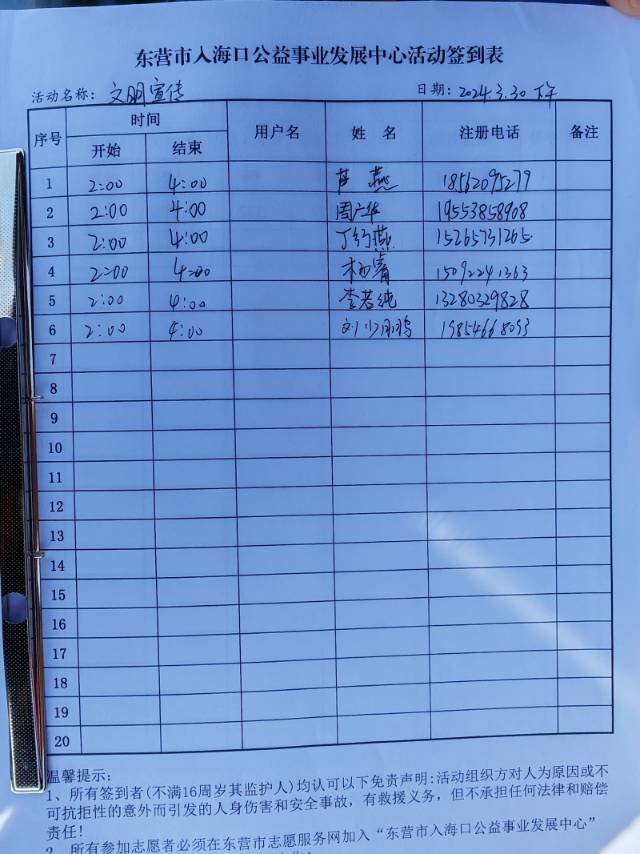 东营市入海口公益事业发展中心活动签到表
活动名称: 文明宣传 日期: 2024.3.30 下午
序号 时间 用户名 姓 名 注册电话 备注
开始 结束
1 2:00 4:00 燕 18562095279
2 2:00 4:00 周广华 19553858908
3 2:00 4:00 丁红燕 15265731265
4 2:00 4:00 15092241363
5 2:00 4:00 李若纯 13280329828
6 2:00 4:00 刘少鹏 19854668093
7
8
9
10
11
12
13
14
15
16
17
18
19
20
温馨提示:
1、所有签到者(不满16周岁其监护人)均认可以下免责声明:活动组织方对人为原因或不
可抗拒性的意外而引发的人身伤害和安全事故，有救援义务，但不承担任何法律和赔偿
责任!
2、所有参加志愿者必须在东营市志愿服务网加入“东营市入海口公益事业发展中心”